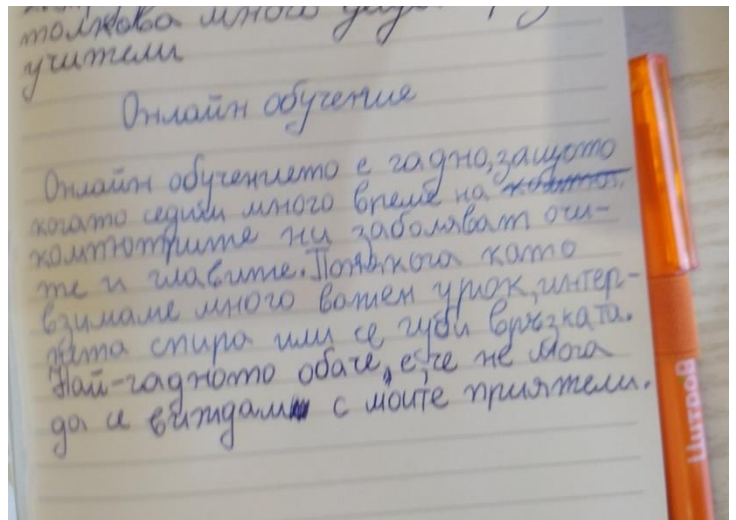 толкова много
учители
Онлайн обучения
Онлайн обучението е гадно, защото
когато седим много време на
компютрите ни заболяват очи-
те и главите. Понякога като
взимаме много важен урок, интер-
нета спира или се губи връзката.
Най-гадното обаче, е, че не мога
да се виждам с моите приятели.